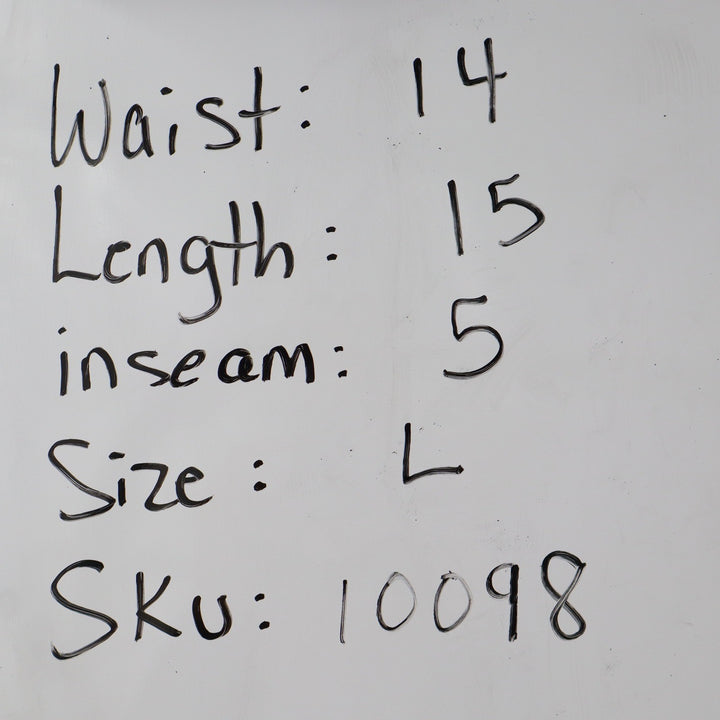 Waist: 14
Length: 15
inseam: 5
Size: L
SKU: 10098